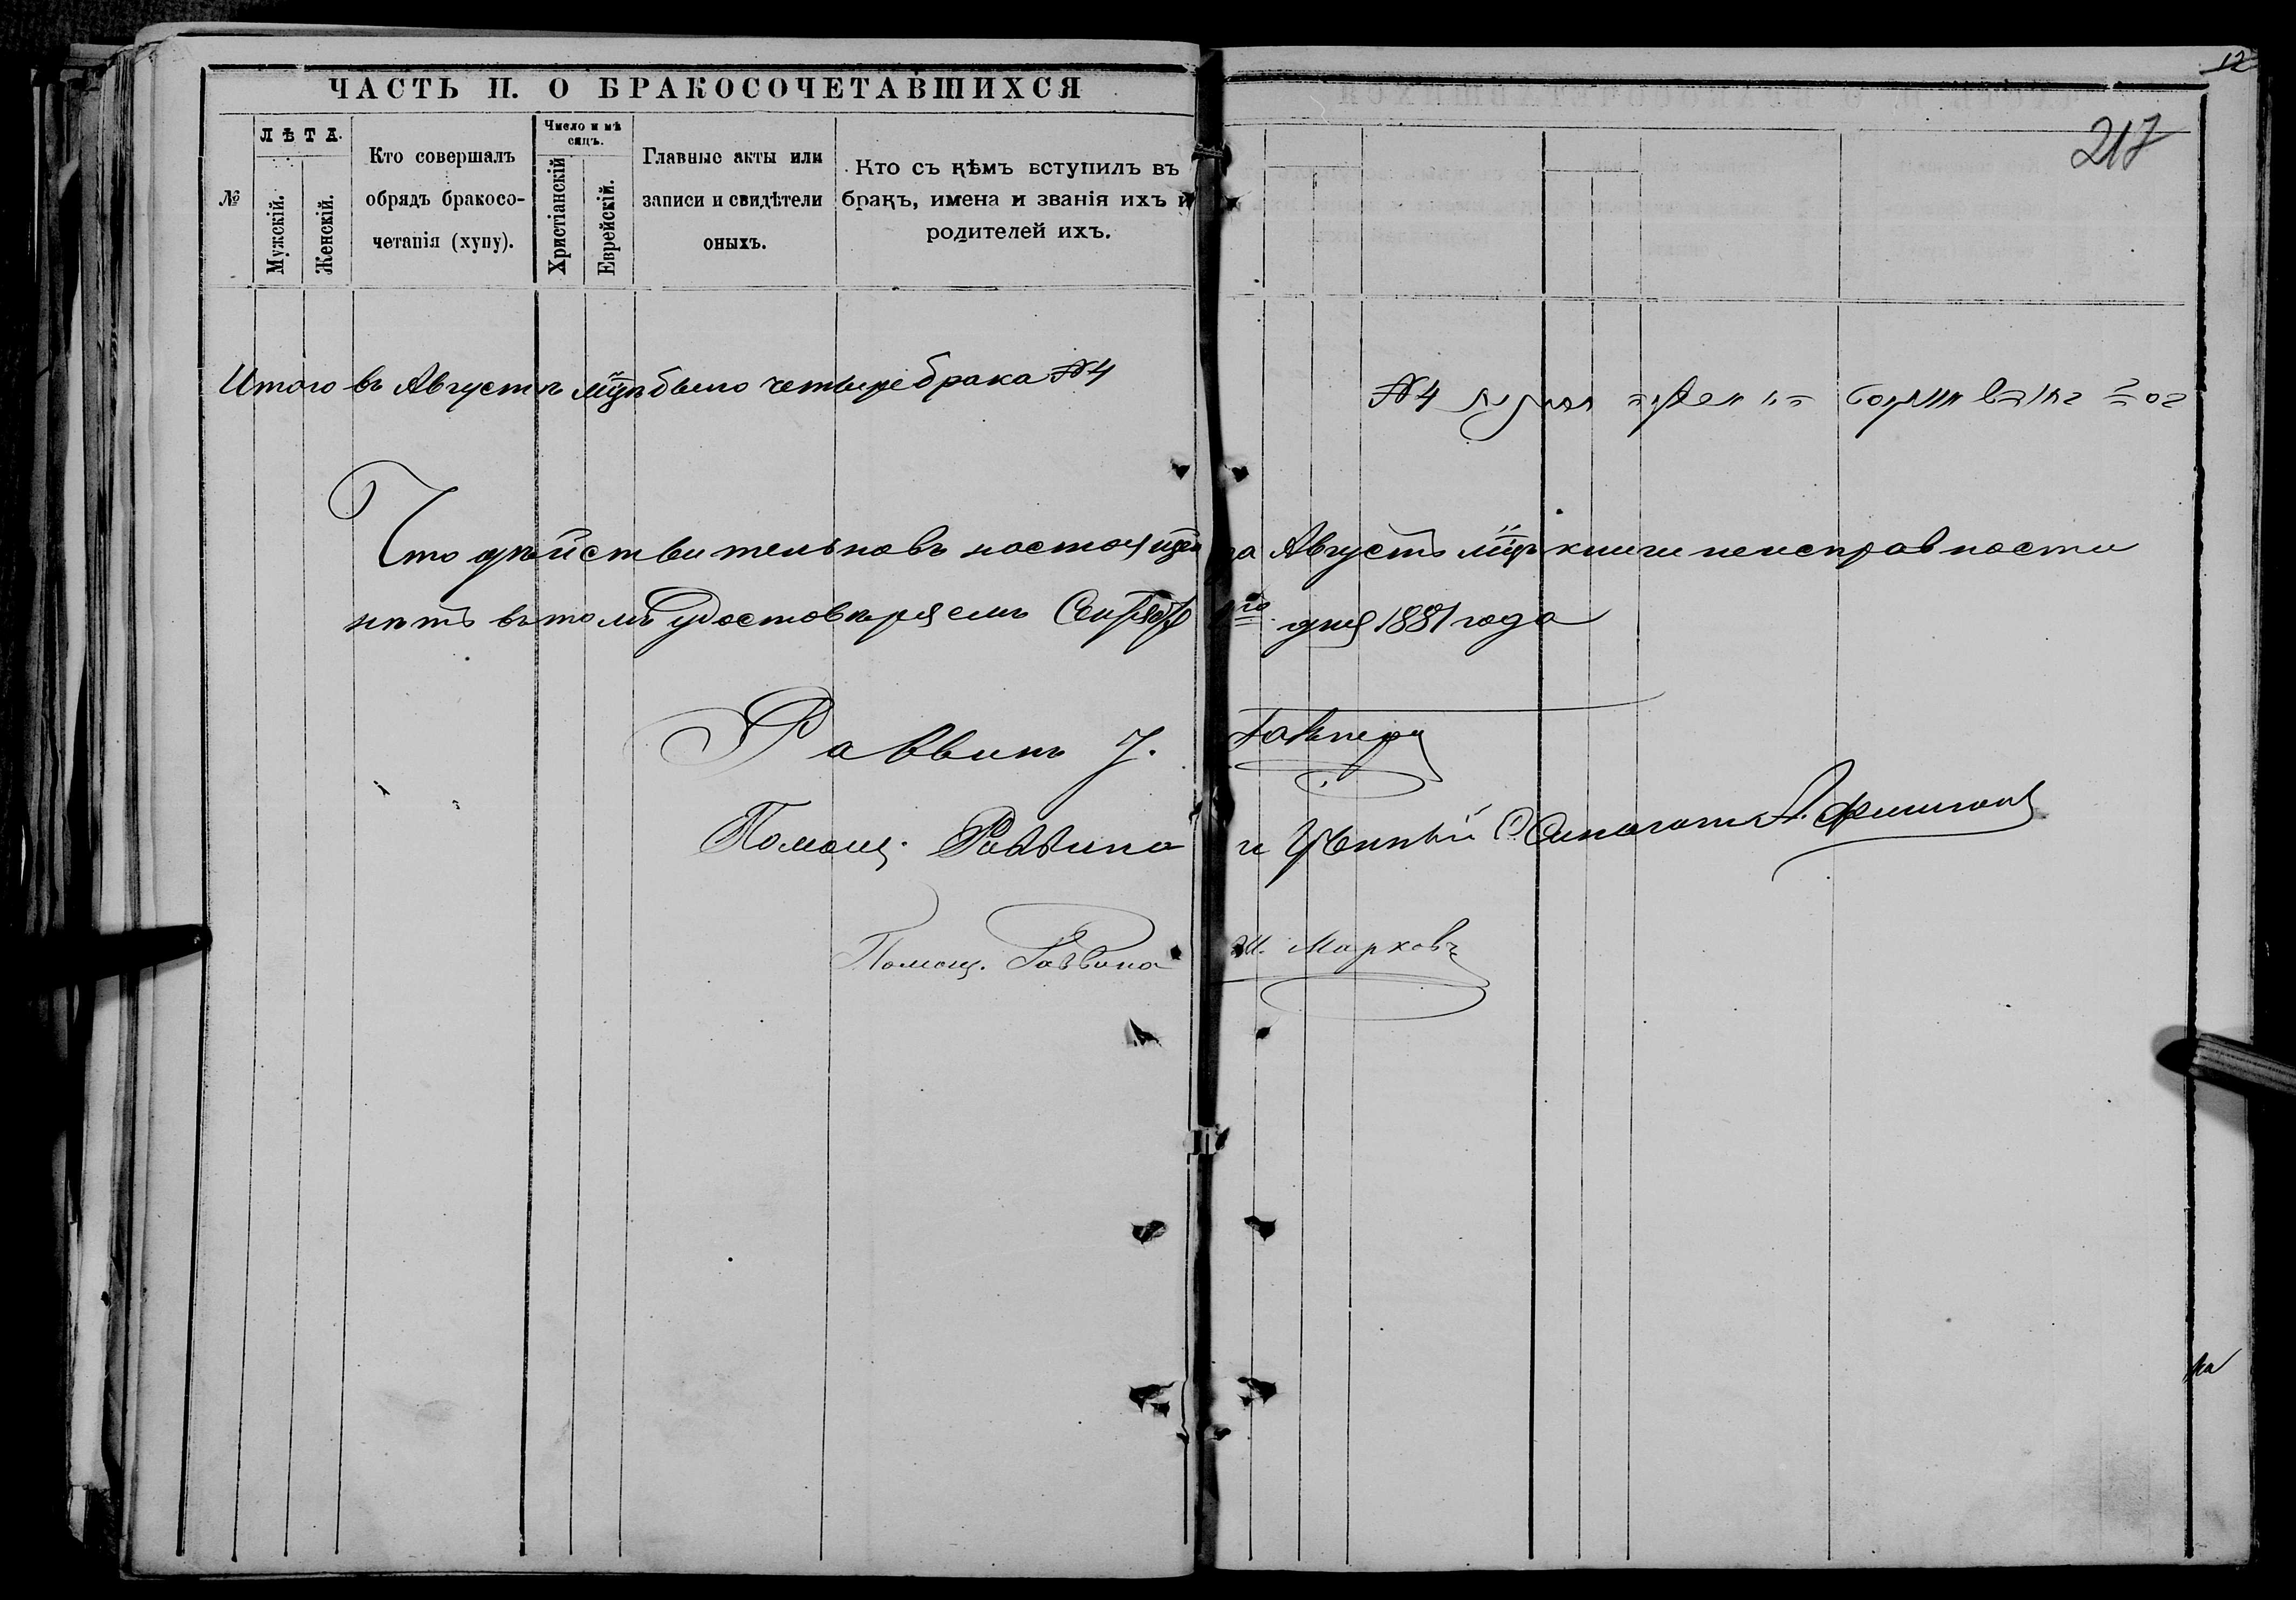 ЧАСТЬ II. О БРАКОСОЧЕТАВШИХСЯ
№
ЛѢТА.
Мужскій.
Женскій.
Кто совершалъ
обрядъ бракосо-
четанія (хупу).
Число и мѣ
сяцъ.
Христіанскій
Еврейскій.
Главные акты или
записи и свидѣтели
оныхъ.
Кто съ кѣмъ вступилъ въ
бракъ, имена и званія ихъ и
родителей ихъ.
Итого въ Августѣ мцѣ было четыре брака №4
12
217
№4
Что дѣйствительно въ настоящей за Августъ мцъ книги неисправности
нѣтъ въ томъ удостовѣряемъ Сентябр 1го дня 1881 года
Раввинъ
Помощ. Раввина и Ученый
Помощ. Раввина Марховъ